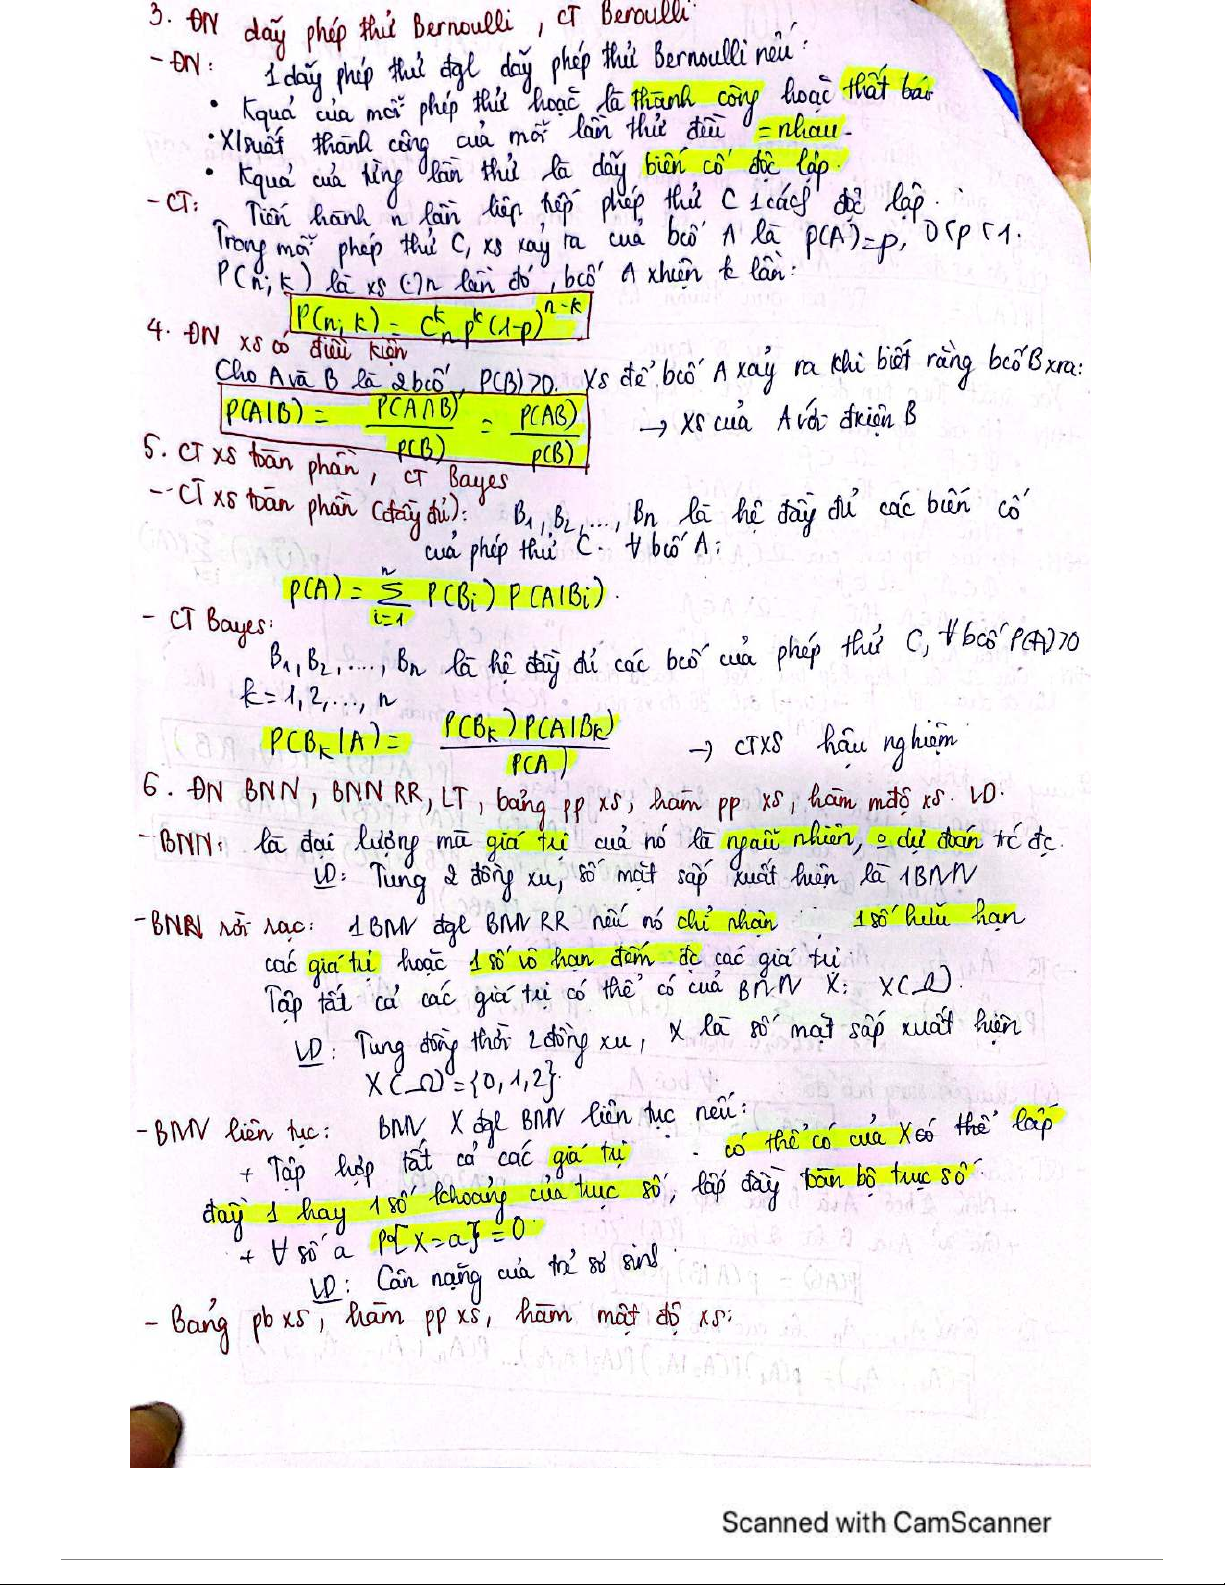 3. ĐN dãy phép thử Bernoulli, CT Beroulli
- ĐN: 1 dãy phép thử đgl dãy phép thử Bernoulli nếu:
• Kquả của mỗi phép thử hoặc là thành công hoặc thất bại
• X/suất thành công của mỗi lần thử đều = nhau.
• Kquả của từng lần thử là dãy biến cố độc lập.
- CT: Tiến hành n lần liên tiếp phép thử C 1 cách độc lập.
Trong mỗi phép thử C, xs xảy ra của bcố A là P(A)=p, 0<p<1.
P(n; k) là xs (.) n lần đó, bcố A xhiện k lần:
P(n; k) = C_n^k p^k (1-p)^{n-k}
4. ĐN xs có điều kiện
Cho A và B là 2 bcố, P(B)>0. XS để bcố A xảy ra khi biết rằng bcố B xra:
P(A|B) = P(A∩B)/P(B) = P(AB)/P(B) → XS của A với đkiện B
5. CT xs toàn phần, CT Bayes
- CT xs toàn phần (đầy đủ): B1, B2, ..., Bn là hệ đầy đủ các biến cố
của phép thử C. ∀ bcố A:
P(A) = Σ_{i=1}^n P(Bi) P(A|Bi).
- CT Bayes:
B1, B2, ...., Bn là hệ đầy đủ các bcố của phép thử C, ∀ bcố P(A)>0
k = 1, 2, ..., n
P(Bk|A) = P(Bk) P(A|Bk)/P(A) → CTXS hậu nghiệm
6. ĐN BNN, BNN RR, LT, bảng pp xs, hàm pp xs, hàm mđộ xs. VD.
- BNN: là đại lượng mà giá trị của nó là ngẫu nhiên, o dự đoán trc đc.
VD: Tung 2 đồng xu, số mặt sấp xuất hiện là 1 BNN
- BNN rời rạc: 1 BNN đgl BNN RR nếu nó chỉ nhận 1 số hữu hạn
các giá trị hoặc 1 số vô hạn đếm đc các giá trị.
Tập tất cả các giá trị có thể có của BNN X: X(Ω).
VD: Tung đồng thời 2 đồng xu, X là số mặt sấp xuất hiện
X(Ω) = {0, 1, 2}.
- BNN liên tục: BNN X đgl BNN liên tục nếu:
+ Tập hợp tất cả các giá trị có thể có của X có thể lấp
đầy 1 hay 1 số khoảng của trục số, lấp đầy toàn bộ trục số.
+ ∀ số a P[X=a] = 0
VD: Cân nặng của trẻ sơ sinh.
- Bảng pb xs, hàm pp xs, hàm mật độ xs:
Scanned with CamScanner